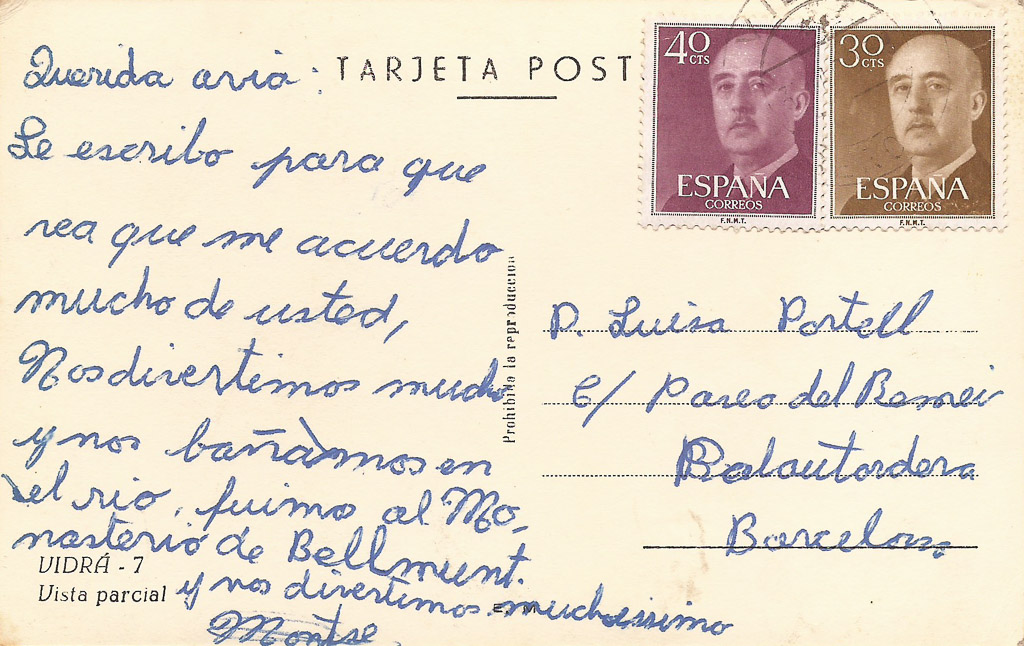 TARJETA POST
40 CTS
ESPAÑA
CORREOS
F.N.M.T.
30 CTS
ESPAÑA
CORREOS
F.N.M.T.
Querida avia:
Le escribo para que
vea que me acuerdo
mucho de usted,
Nos divertimos mucho
y nos bañàmmos en
el rio, fuimos al Mo-
nasterio de Bellmunt.
y nos divertimos muchissimo
Montse
VIDRÁ - 7
Vista parcial
Prohibida la reproducción
D. Luisa Portell
C/ Paseo del Remei
Balautordera
Barcelona